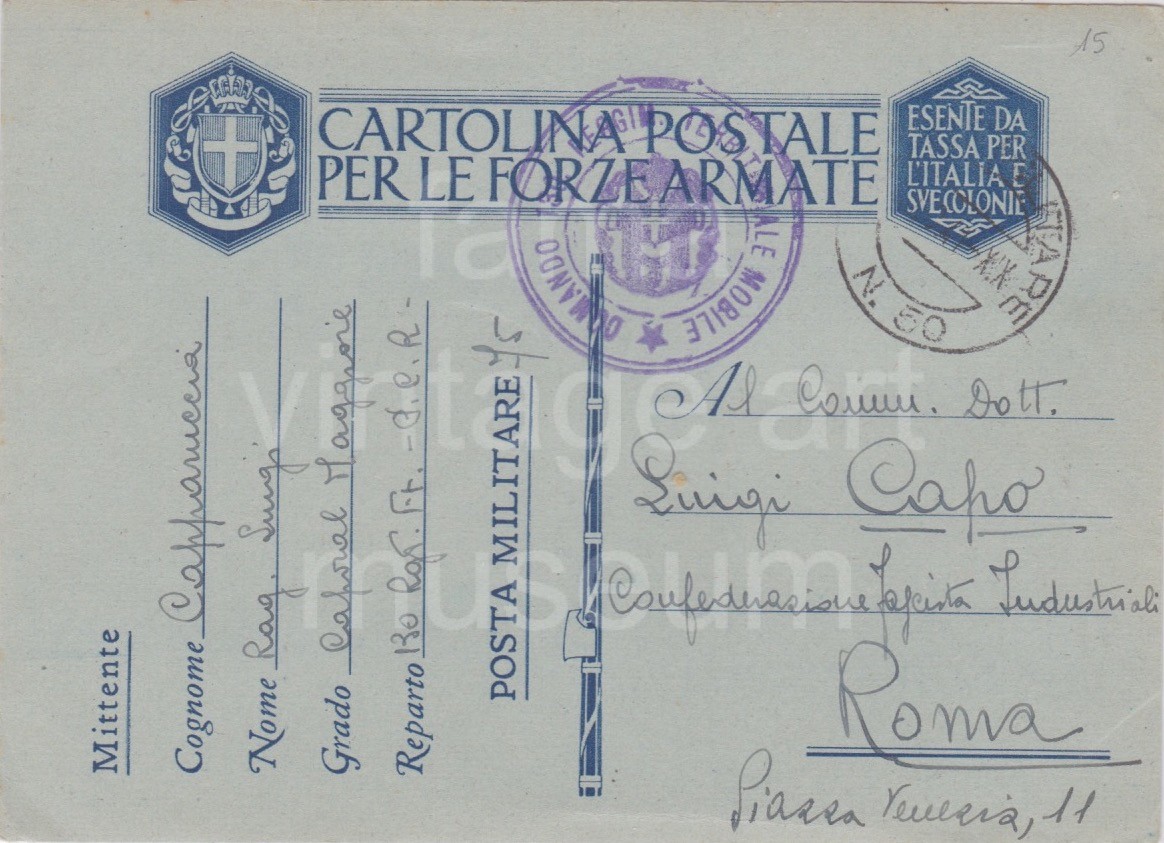 15
CARTOLINA POSTALE
PER LE FORZE ARMATE
ESENTE DA
TASSA PER
L'ITALIA E
SVE COLONIE
COMANDO REGGIM. TERRITORIALE MOBILE
N. 50
Mittente
Cognome Cappanuccia
Nome Rag. Luigi
Grado Caporal Maggiore
Reparto 130 Rgt. Ft.
POSTA MILITARE 75
Al Comm. Dott.
Luigi Capo
Confederazione Fascista Industriali
Roma
Piazza Venezia, 11
vintage art
museum